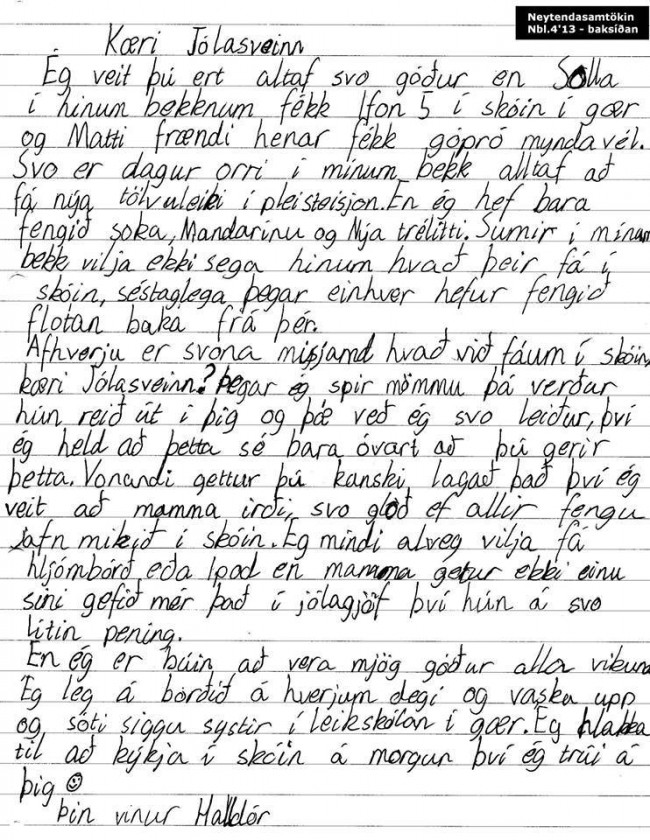 Neytendasamtökin
Nbl.4'13 - baksíðan
Kæri Jólasveinn
Ég veit þú ert altaf svo góður en Solla
í hinum bekknum fékk Ifon 5 í skóin í gær
og Matti frændi henar fékk gópró myndavél.
Svo er dagur orri í mínum bekk alltaf að
fá nýja tölvuleiki í pleisteisjon. En ég hef bara
fengið soka, Mandarínu og Nýja trélitti. Sumir í mínum
bekk vilja ekki sega hinum hvað þeir fá í
skóin, séstaglega þegar einhver hefur fengið
flotan baka frá þér.
Afhverju er svona misjamt hvað við fáum í skóin,
kæri Jólasveinn? Þegar ég spir mömmu þá verður
hún reið út í þig og þá veð ég svo leiður, því
ég held að þetta sé bara óvart að þú gerir
þetta. Vonandi gettur þú kanski lagað það því ég
veit að mamma irði svo glöð ef allir fengu
jafn mikið í skóin. Ég mindi alveg vilja fá
hljómborð eða Ipad en mamma getur ekki einu
sini gefið mér það í jólagjöf því hún á svo
litin pening.
En ég er búin að vera mjög góður alla vikuna
Ég leg á borðið á hverjum degi og vaska upp
og sóti siggu systir í leikskólan í gær. Ég hlakka
til að kýkja í skóin á morgun því ég trúi á
þig ☺
þin vinur Halldór